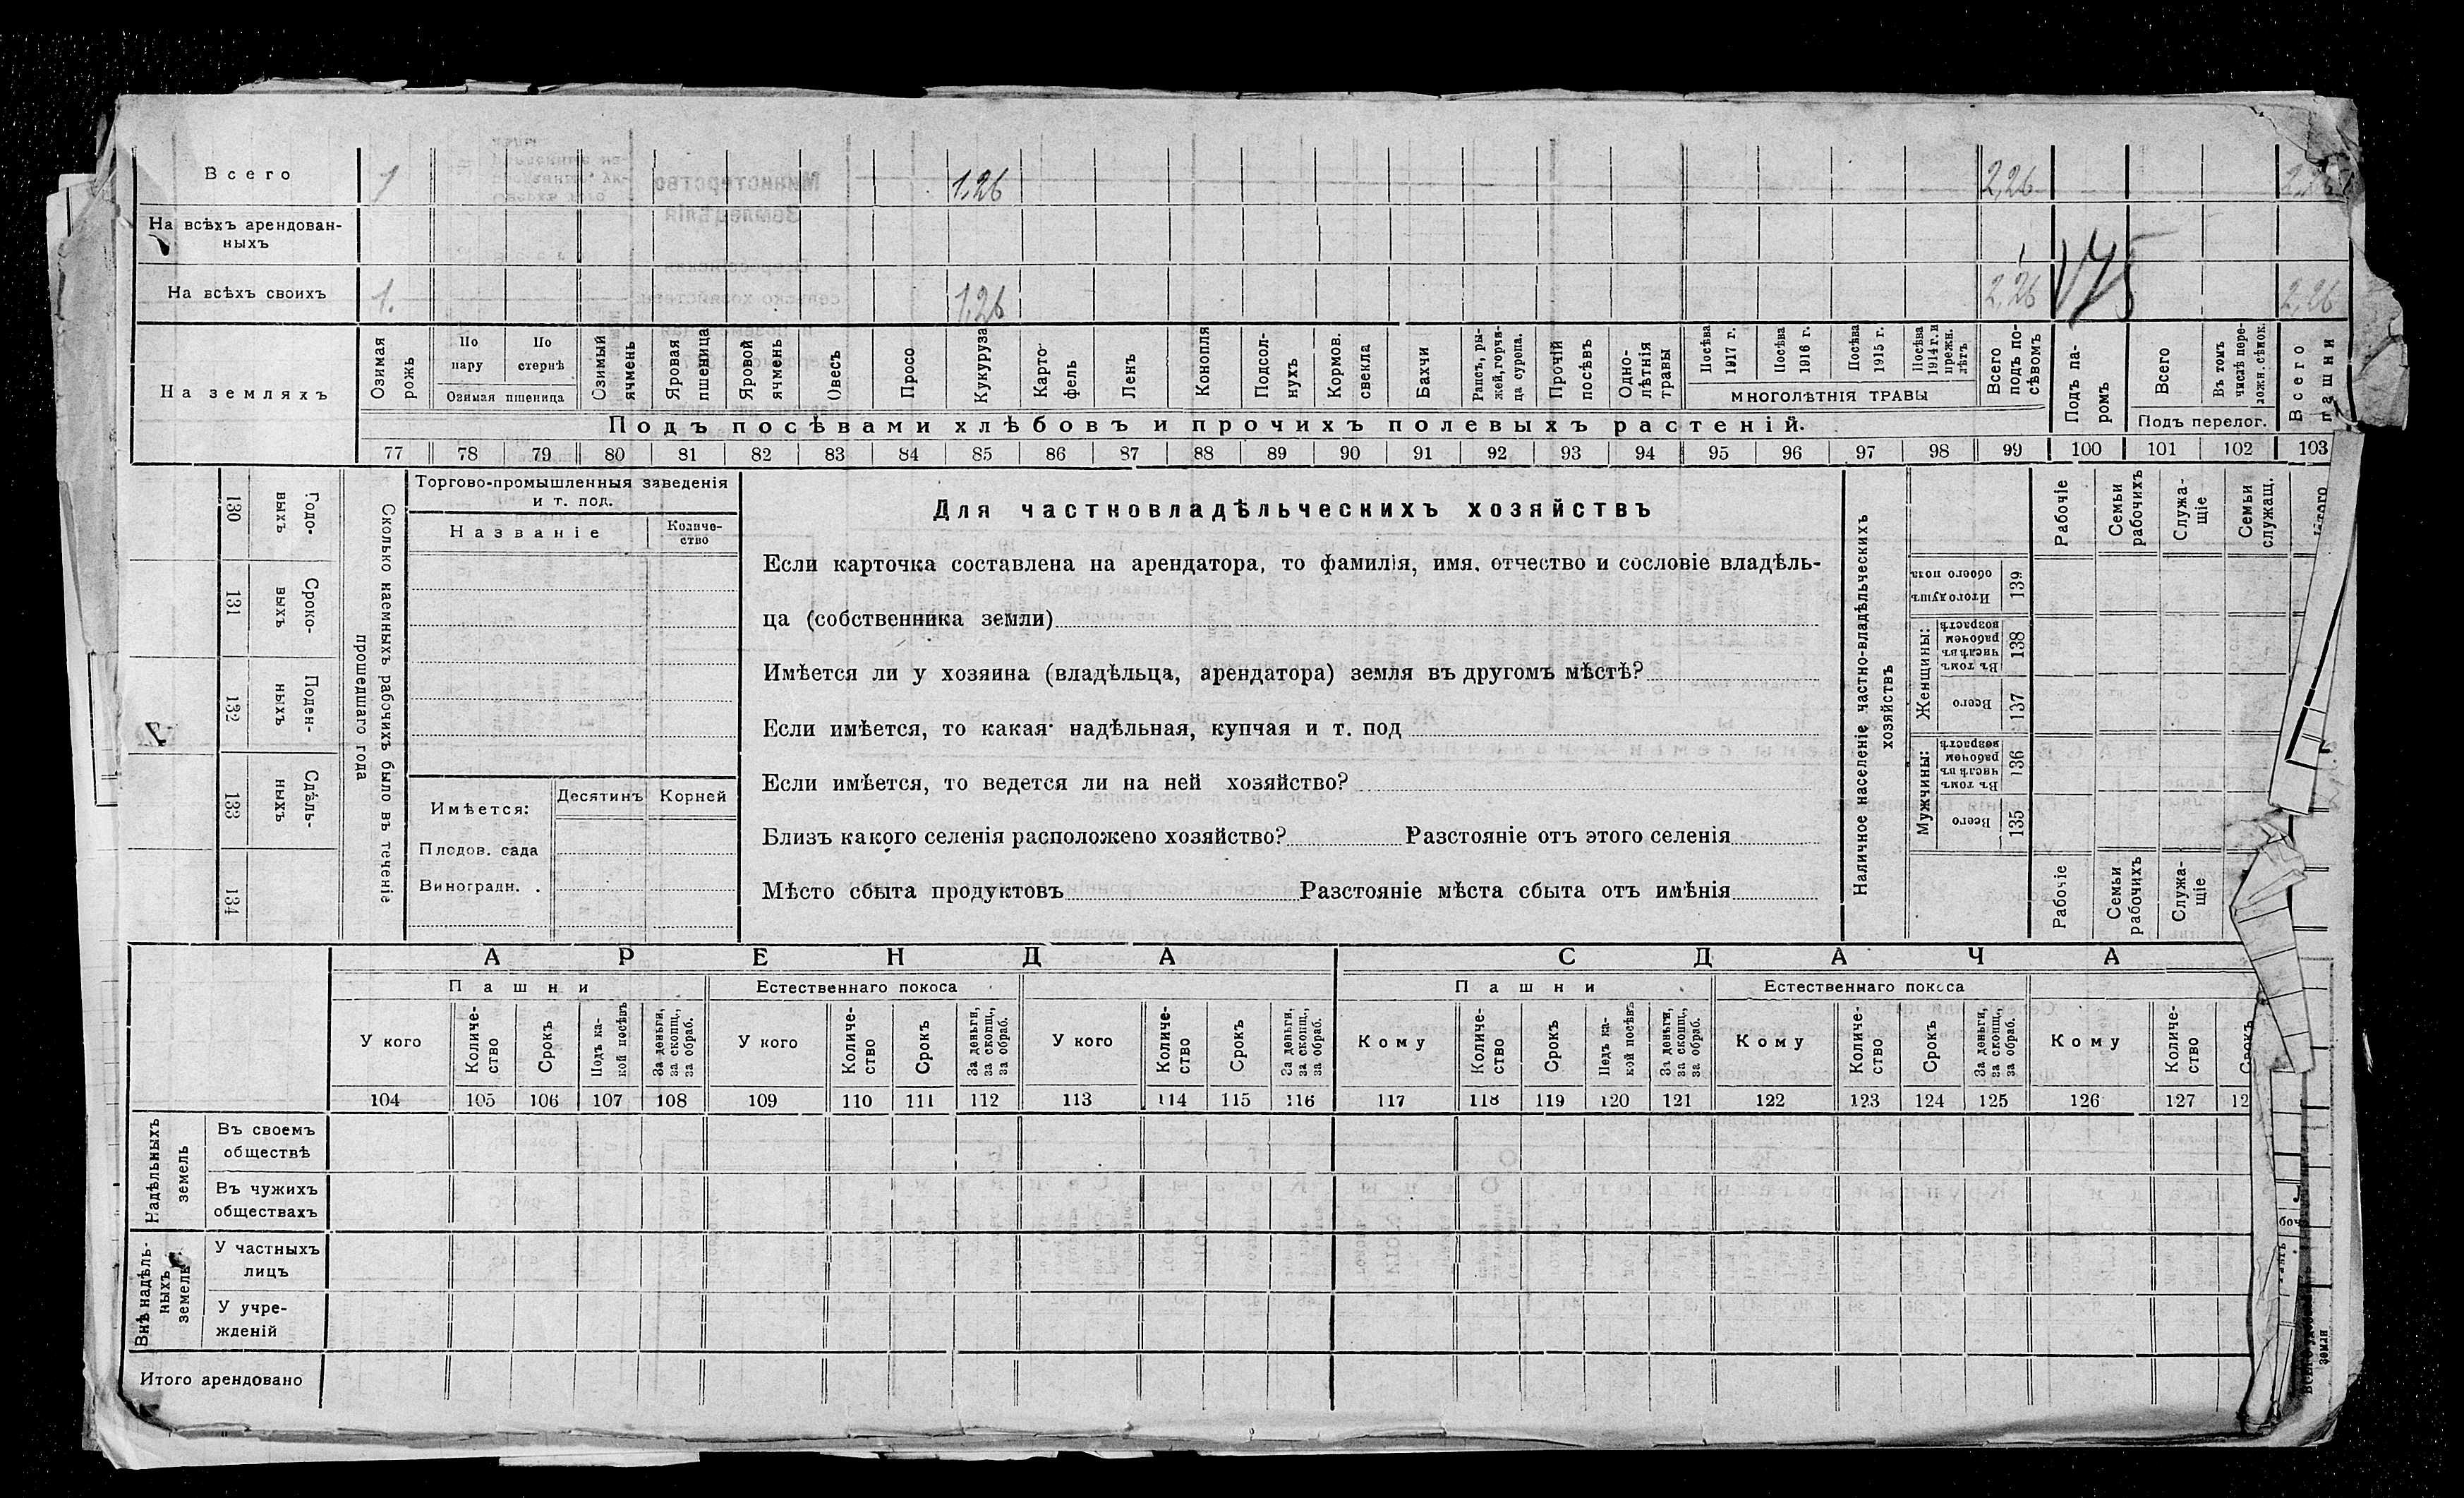 Всего 1 1,26 2,26
На всѣхъ арендован-
ныхъ
На всѣхъ своихъ 1. 1,26 2,26 2,26
175
На земляхъ
Озимая рожь
По пару
По стернѣ
Озимая пшеница
Озимый ячмень
Яровая пшеница
Яровой ячмень
Овесъ
Просо
Кукуруза
Карто-
фель
Ленъ
Конопля
Подсол-
нухъ
Кормов. свекла
Бахчи
Рапсъ, ры-
жей, горчи-
ца сурепа.
Прочій посѣвъ
Одно-
лѣтнія травы
Посѣва 1917 г.
Посѣва 1916 г.
Посѣва 1915 г.
Посѣва 1914 г. и прежн. лѣтъ
МНОГОЛѢТНІЯ ТРАВЫ
Всего подъ по-
сѣвомъ
Подъ па-
ромъ
Всего
Въ томъ числѣ пере-
ложн. сѣнок.
Подъ перелог.
Всего пашни
Подъ посѣвами хлѣбовъ и прочихъ полевыхъ растеній.
77 78 79 80 81 82 83 84 85 86 87 88 89 90 91 92 93 94 95 96 97 98 99 100 101 102 103
130 Годо-
выхъ
131 Сроко-
выхъ
132 Поден-
ныхъ
133 Сдѣль-
ныхъ
134
Сколько наемныхъ рабочихъ было въ теченіе
прошедшаго года
Торгово-промышленныя заведенія
и т. под.
Названіе
Количе-
ство
Имѣется: Десятинъ Корней
Плодов. сада
Виноградн. .
Для частновладѣльческихъ хозяйствъ
Если карточка составлена на арендатора, то фамилія, имя, отчество и сословіе владѣль-
ца (собственника земли)
Имѣется ли у хозяина (владѣльца, арендатора) земля въ другомъ мѣстѣ?
Если имѣется, то какая: надѣльная, купчая и т. под
Если имѣется, то ведется ли на ней хозяйство?
Близъ какого селенія расположено хозяйство? Разстояніе отъ этого селенія
Мѣсто сбыта продуктовъ Разстояніе мѣста сбыта отъ имѣнія
Наличное населеніе частно-владѣльческихъ
хозяйствъ
Рабочіе
Семьи рабочихъ
Служа-
щіе
Семьи служащ.
Итого
Итого душъ обоего пола 139
Женщины:
Въ томъ числѣ въ рабочемъ возрастѣ 138
Всего 137
Мужчины:
Въ томъ числѣ въ рабочемъ возрастѣ 136
Всего 135
Рабочіе
Семьи рабочихъ
Служа-
щіе
АРЕНДА СДАЧА
Пашни Естественнаго покоса Пашни Естественнаго покоса
У кого
Количе-
ство
Срокъ
Подъ ка-
кой посѣвъ
За деньги,
за скопщ.,
за обраб.
У кого
Количе-
ство
Срокъ
За деньги,
за скопщ.,
за обраб.
У кого
Количе-
ство
Срокъ
За деньги,
за скопщ.,
за обраб.
Кому
Количе-
ство
Срокъ
Подъ ка-
кой посѣвъ
За деньги,
за скопщ.,
за обраб.
Кому
Количе-
ство
Срокъ
За деньги,
за скопщ.,
за обраб.
Кому
Количе-
ство
Срокъ
104 105 106 107 108 109 110 111 112 113 114 115 116 117 118 119 120 121 122 123 124 125 126 127 12
Надѣльныхъ
земель
Въ своемъ
обществѣ
Въ чужихъ
обществахъ
Внѣнадѣль-
ныхъ
земель
У частныхъ
лицъ
У учре-
жденій
Итого арендовано
земли